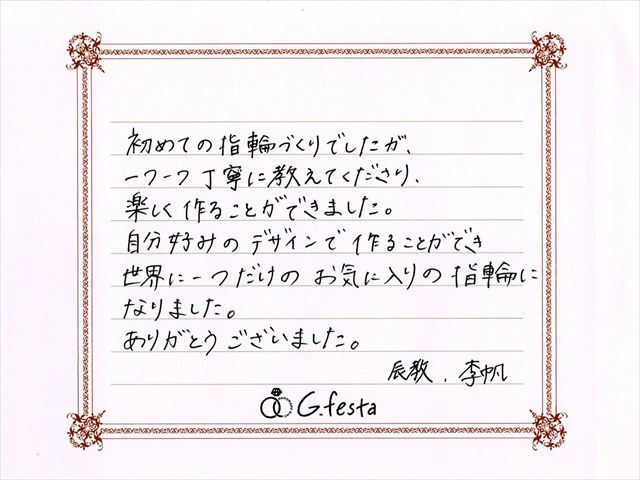 初めての指輪づくりでしたが、
一つ一つ丁寧に教えてくださり、
楽しく作ることができました。
自分好みのデザインで作ることができ
世界に一つだけのお気に入りの指輪に
なりました。
ありがとうございました。
辰教、李帆
G.festa